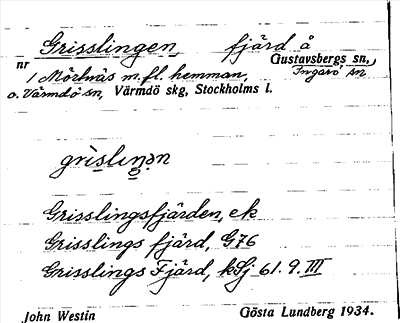 Grisslingen, fjärd å
nr Gustavsbergs sn,
1 Mörtnäs m.fl. hemman, Ingarö sn
o. Värmdö sn, Värmdö skg, Stockholms l.
grìslıŋən
Grisslingsfjärden, ek
Grisslings fjärd, G76
Grisslings Fjärd, kSj 61.9.III
John Westin Gösta Lundberg 1934.